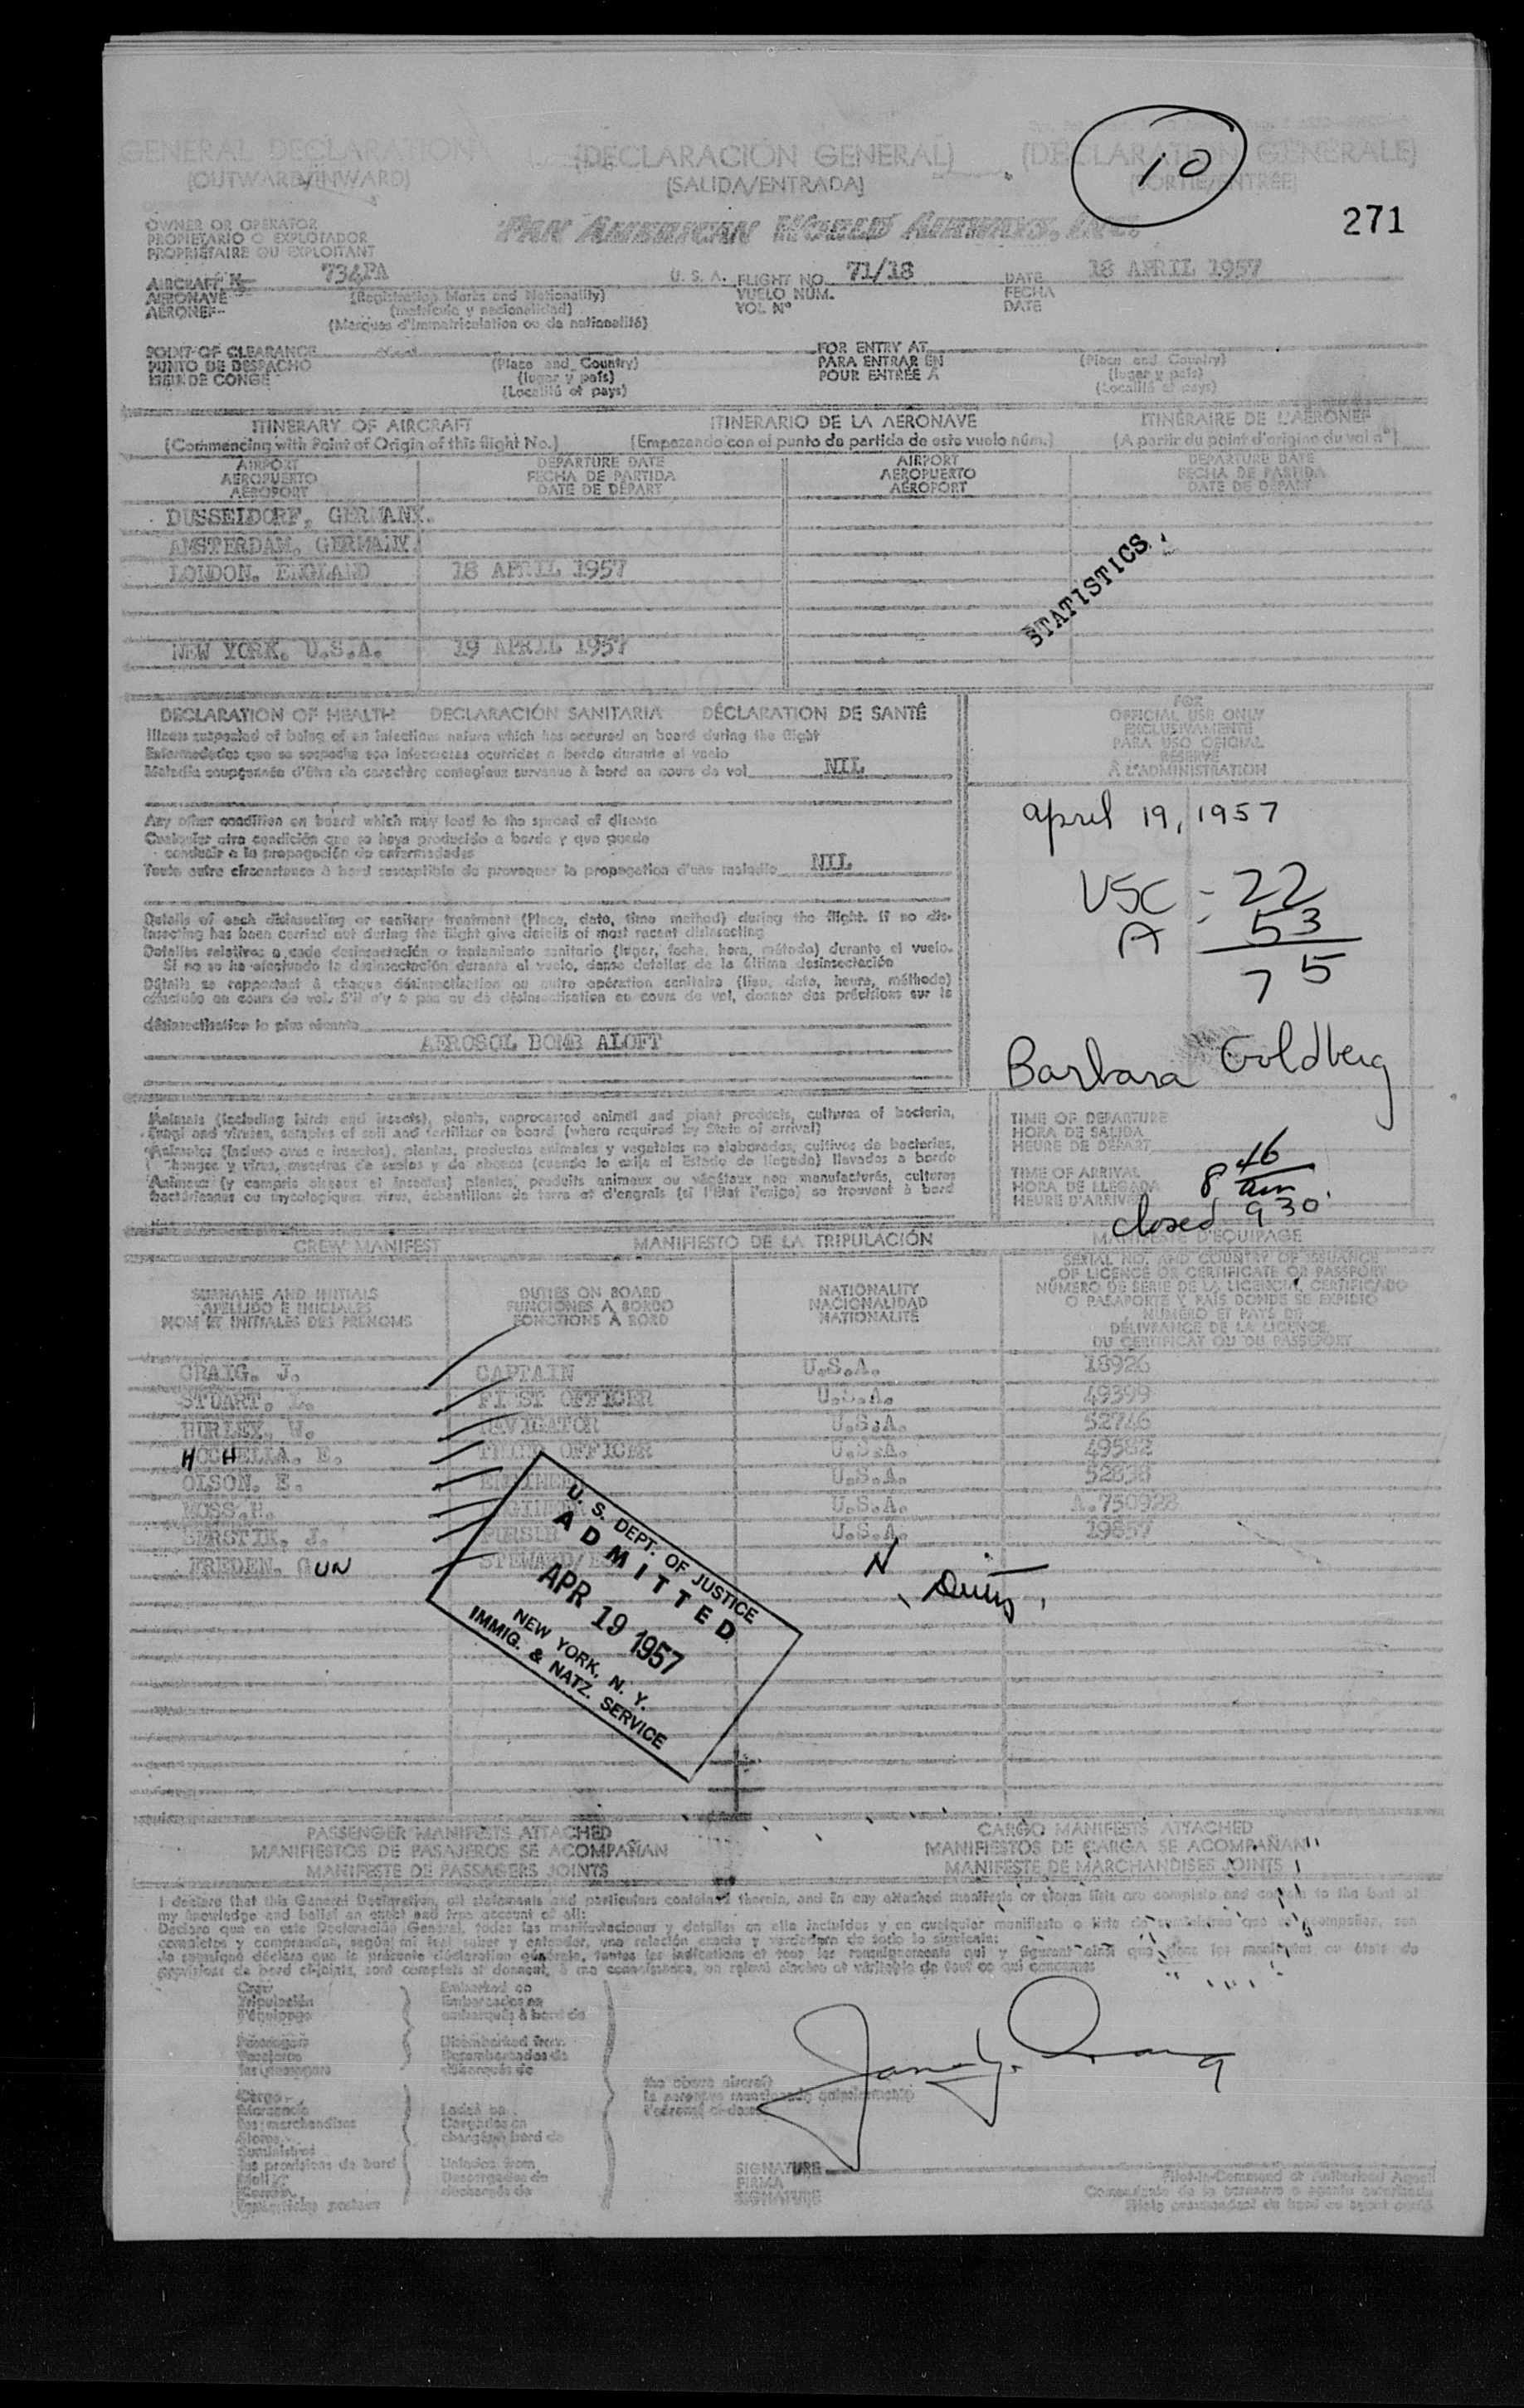 10
GENERAL DECLARATION (DECLARACIÓN GENERAL) (DÉCLARATION GÉNÉRALE)
(OUTWARD/INWARD) (SALIDA/ENTRADA) (SORTIE/ENTRÉE)
271
OWNER OR OPERATOR
PROPIETARIO O EXPLOTADOR
PROPRIÉTAIRE OU EXPLOITANT
PAN AMERICAN WORLD AIRWAYS, INC.
AIRCRAFT N 734PA U. S. A. FLIGHT NO. 71/18 DATE 18 APRIL 1957
AERONAVE (Registration Marks and Nationality) VUELO NÚM. FECHA
AÉRONEF (matrícula y nacionalidad) VOL Nº DATE
(Marques d'immatriculation ou de nationalité)
POINT OF CLEARANCE (Place and Country) FOR ENTRY AT (Place and Country)
PUNTO DE DESPACHO (lugar y país) PARA ENTRAR EN (lugar y país)
LIEU DE CONGÉ (Localité et pays) POUR ENTRÉE À (Localité et pays)
ITINERARY OF AIRCRAFT ITINERARIO DE LA AERONAVE ITINÉRAIRE DE L'AÉRONEF
(Commencing with Point of Origin of this flight No.) (Empezando con el punto de partida de este vuelo núm.) (A partir du point d'origine du vol nº)
AIRPORT DEPARTURE DATE AIRPORT DEPARTURE DATE
AEROPUERTO FECHA DE PARTIDA AEROPUERTO FECHA DE PARTIDA
AÉROPORT DATE DE DÉPART AÉROPORT DATE DE DÉPART
DUSSELDORF, GERMANY.
AMSTERDAM, GERMANY.
LONDON. ENGLAND 18 APRIL 1957
STATISTICS
NEW YORK. U.S.A. 19 APRIL 1957
DECLARATION OF HEALTH DECLARACIÓN SANITARIA DÉCLARATION DE SANTÉ
Illness suspected of being of an infectious nature which has occured on board during the flight
Enfermedades que se sospecha son infecciosas ocurridas a bordo durante el vuelo
Maladie soupçonnée d'être de caractère contagieux survenue à bord en cours de vol NIL
Any other condition on board which may lead to the spread of disease
Cualquier otra condición que se haya producido a bordo y que puede
conducir a la propagación de enfermedades
Toute autre circonstance à bord susceptible de provoquer la propagation d'une maladie NIL
Details of each disinsecting or sanitary treatment (Place, date, time method) during the flight. If no dis-
insecting has been carried out during the flight give details of most recent disinsecting
Detalles relativos a cada desinsectación o tratamiento sanitario (lugar, fecha, hora, método) durante el vuelo.
Si no se ha efectuado la desinsectación durante el vuelo, danse detalles de la última desinsectación
Détails se rapportant à chaque désinsectisation ou autre opération sanitaire (lieu, date, heure, méthode)
effectuée en cours de vol. S'il n'y a pas eu de désinsectisation en cours de vol, donner des précisions sur la
désinsectisation la plus récente
AEROSOL BOMB ALOFT
FOR
OFFICIAL USE ONLY
EXCLUSIVAMENTE
PARA USO OFICIAL
RÉSERVÉ
À L'ADMINISTRATION
April 19, 1957
USC - 22
A - 53
75
Barbara Goldberg
Animals (including birds and insects), plants, unprocessed animal and plant products, cultures of bacteria,
fungi and viruses, samples of soil and fertilizer on board (where required by State of arrival)
Animales (incluso aves e insectos), plantas, productos animales y vegetales no elaborados, cultivos de bacterias,
hongos y virus, muestras de suelos y de abonos (cuando lo exija el Estado de llegada) llevados a bordo
Animaux (y compris oiseaux et insectes) plantes, produits animaux ou végétaux non manufacturés, cultures
bactériennes ou mycologiques, virus, échantillons de terre et d'engrais (si l'État l'exige) se trouvant à bord
TIME OF DEPARTURE
HORA DE SALIDA
HEURE DE DÉPART
TIME OF ARRIVAL
HORA DE LLEGADA
HEURE D'ARRIVÉE
8 46 am
closed 9 30
CREW MANIFEST MANIFIESTO DE LA TRIPULACIÓN MANIFESTE D'ÉQUIPAGE
SURNAME AND INITIALS
APELLIDO E INICIALES
NOM ET INITIALES DES PRÉNOMS
DUTIES ON BOARD
FUNCIONES A BORDO
FONCTIONS À BORD
NATIONALITY
NACIONALIDAD
NATIONALITÉ
SERIAL NO. AND COUNTRY OF ISSUANCE
OF LICENCE OR CERTIFICATE OR PASSPORT
NÚMERO DE SERIE DE LA LICENCIA, CERTIFICADO
O PASAPORTE Y PAÍS DONDE SE EXPIDIÓ
NUMÉRO ET PAYS DE
DÉLIVRANCE DE LA LICENCE,
DU CERTIFICAT OU DU PASSEPORT
CRAIG. J. CAPTAIN U.S.A. 18926
STUART. L. FIRST OFFICER U.S.A. 49399
HURLEY. W. NAVIGATOR U.S.A. 52746
HOCHELLA. E. THIRD OFFICER U.S.A. 49582
OLSON. E. ENGINEER U.S.A. 52838
MOSS. H. ENGINEER U.S.A. A.750928
GERSTIK. J. PURSER U.S.A. 19857
FREDEN. GUN STEWARD/ESS
U. S. DEPT. OF JUSTICE
ADMITTED
APR 19 1957
NEW YORK, N. Y.
IMMIG. & NATZ. SERVICE
PASSENGER MANIFESTS ATTACHED CARGO MANIFESTS ATTACHED
MANIFIESTOS DE PASAJEROS SE ACOMPAÑAN MANIFIESTOS DE CARGA SE ACOMPAÑAN
MANIFESTE DE PASSAGERS JOINTS MANIFESTE DE MARCHANDISES JOINTS
I declare that this General Declaration, all statements and particulars contained therein, and in any attached manifests or stores lists are complete and correct to the best of
my knowledge and belief an exact and true account of all:
Declaro que en esta Declaración General, todas las manifestaciones y detalles en ella incluidos y en cualquier manifiesto o lista de suministros que se acompañan, son
completos y comprenden, según mi leal saber y entender, una relación exacta y verdadera de todo lo siguiente:
Je soussigné déclare que la présente déclaration générale, toutes les indications et tous les renseignements qui y figurent ainsi que dans les manifestes ou états de
provisions de bord ci-joints, sont complets et donnent, à ma connaissance, un relevé sincère et véritable de tout ce qui concerne:
Crew Embarked on
Tripulación Embarcados en
l'équipage embarqués à bord de
Passengers Disembarked from
Pasajeros Desembarcados de
les passagers débarqués de
the above aircraft
Cargo
Mercancía Laden on
les marchandises Cargados en
Stores chargés à bord de
Suministros
les provisions de bord Unladen from
Mail Descargados de
Correo déchargés de
SIGNATURE
FIRMA
SIGNATURE
Pilot-in-Command or Authorized Agent